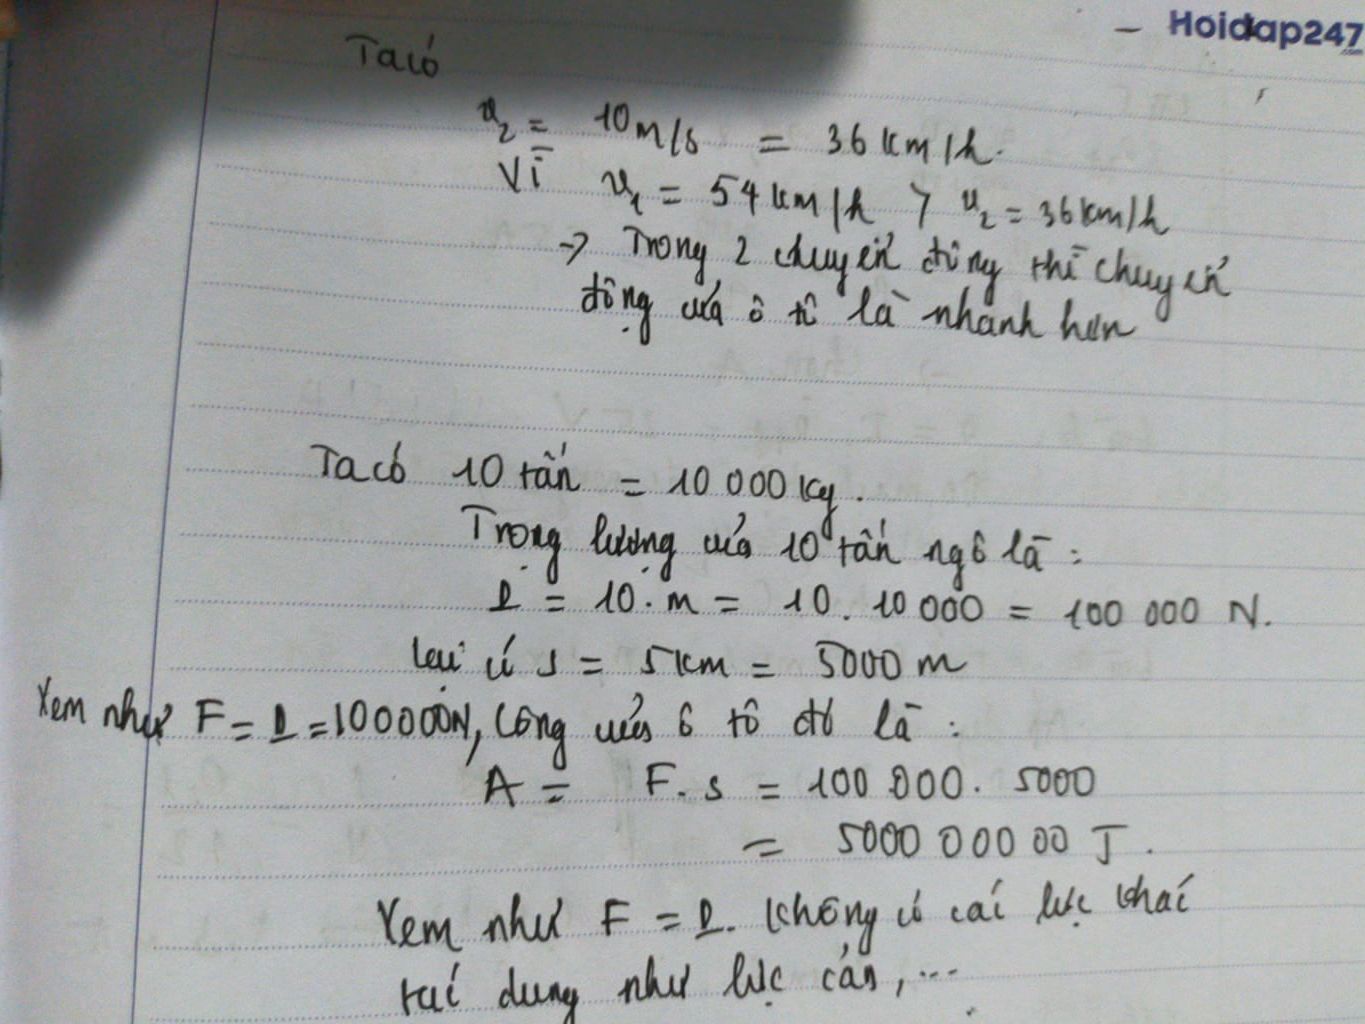 Hoidap247
.com
Ta có
v₂ = 10 m/s = 36 km/h.
Vì v₁ = 54 km/h > v₂ = 36 km/h
→ Trong 2 chuyển động thì chuyển
động của ô tô là nhanh hơn
Ta có 10 tấn = 10 000 kg.
Trọng lượng của 10 tấn ngô là :
P = 10 . m = 10 . 10 000 = 100 000 N.
Lại có s = 5 km = 5000 m
Xem như F = P = 100000N, Công của ô tô đó là :
A = F . s = 100 000 . 5000
= 5000 000 00 J .
Xem như F = P. Không có các lực khác
tác dụng như lực cản, ...